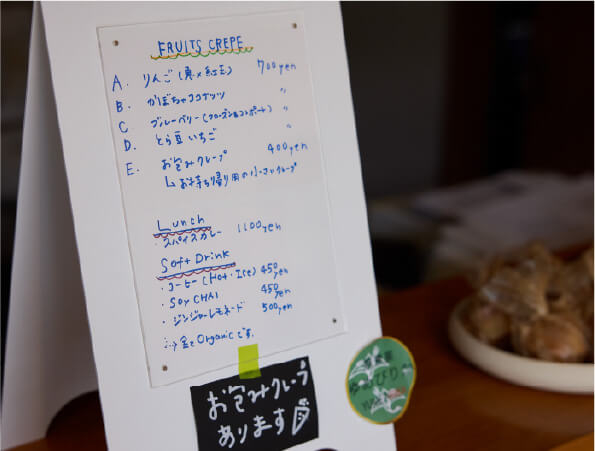 FRUITS CREPE
A. りんご(東×紅玉) 700yen
B. かぼちゃココナッツ 〃
C ブルーベリー(フローズン&コンポート) 〃
D. とら豆いちご 〃
E. お包みクレープ 400yen
↳お持ち帰り用の小さいクレープ
Lunch
・スパイスカレー 1100yen
Soft Drink
・コーヒー(Hot・Ice) 450yen
・SOY CHAI 450yen
・ジンジャーレモネード 500yen
全てOrganicです。
お包みクレープ
あります